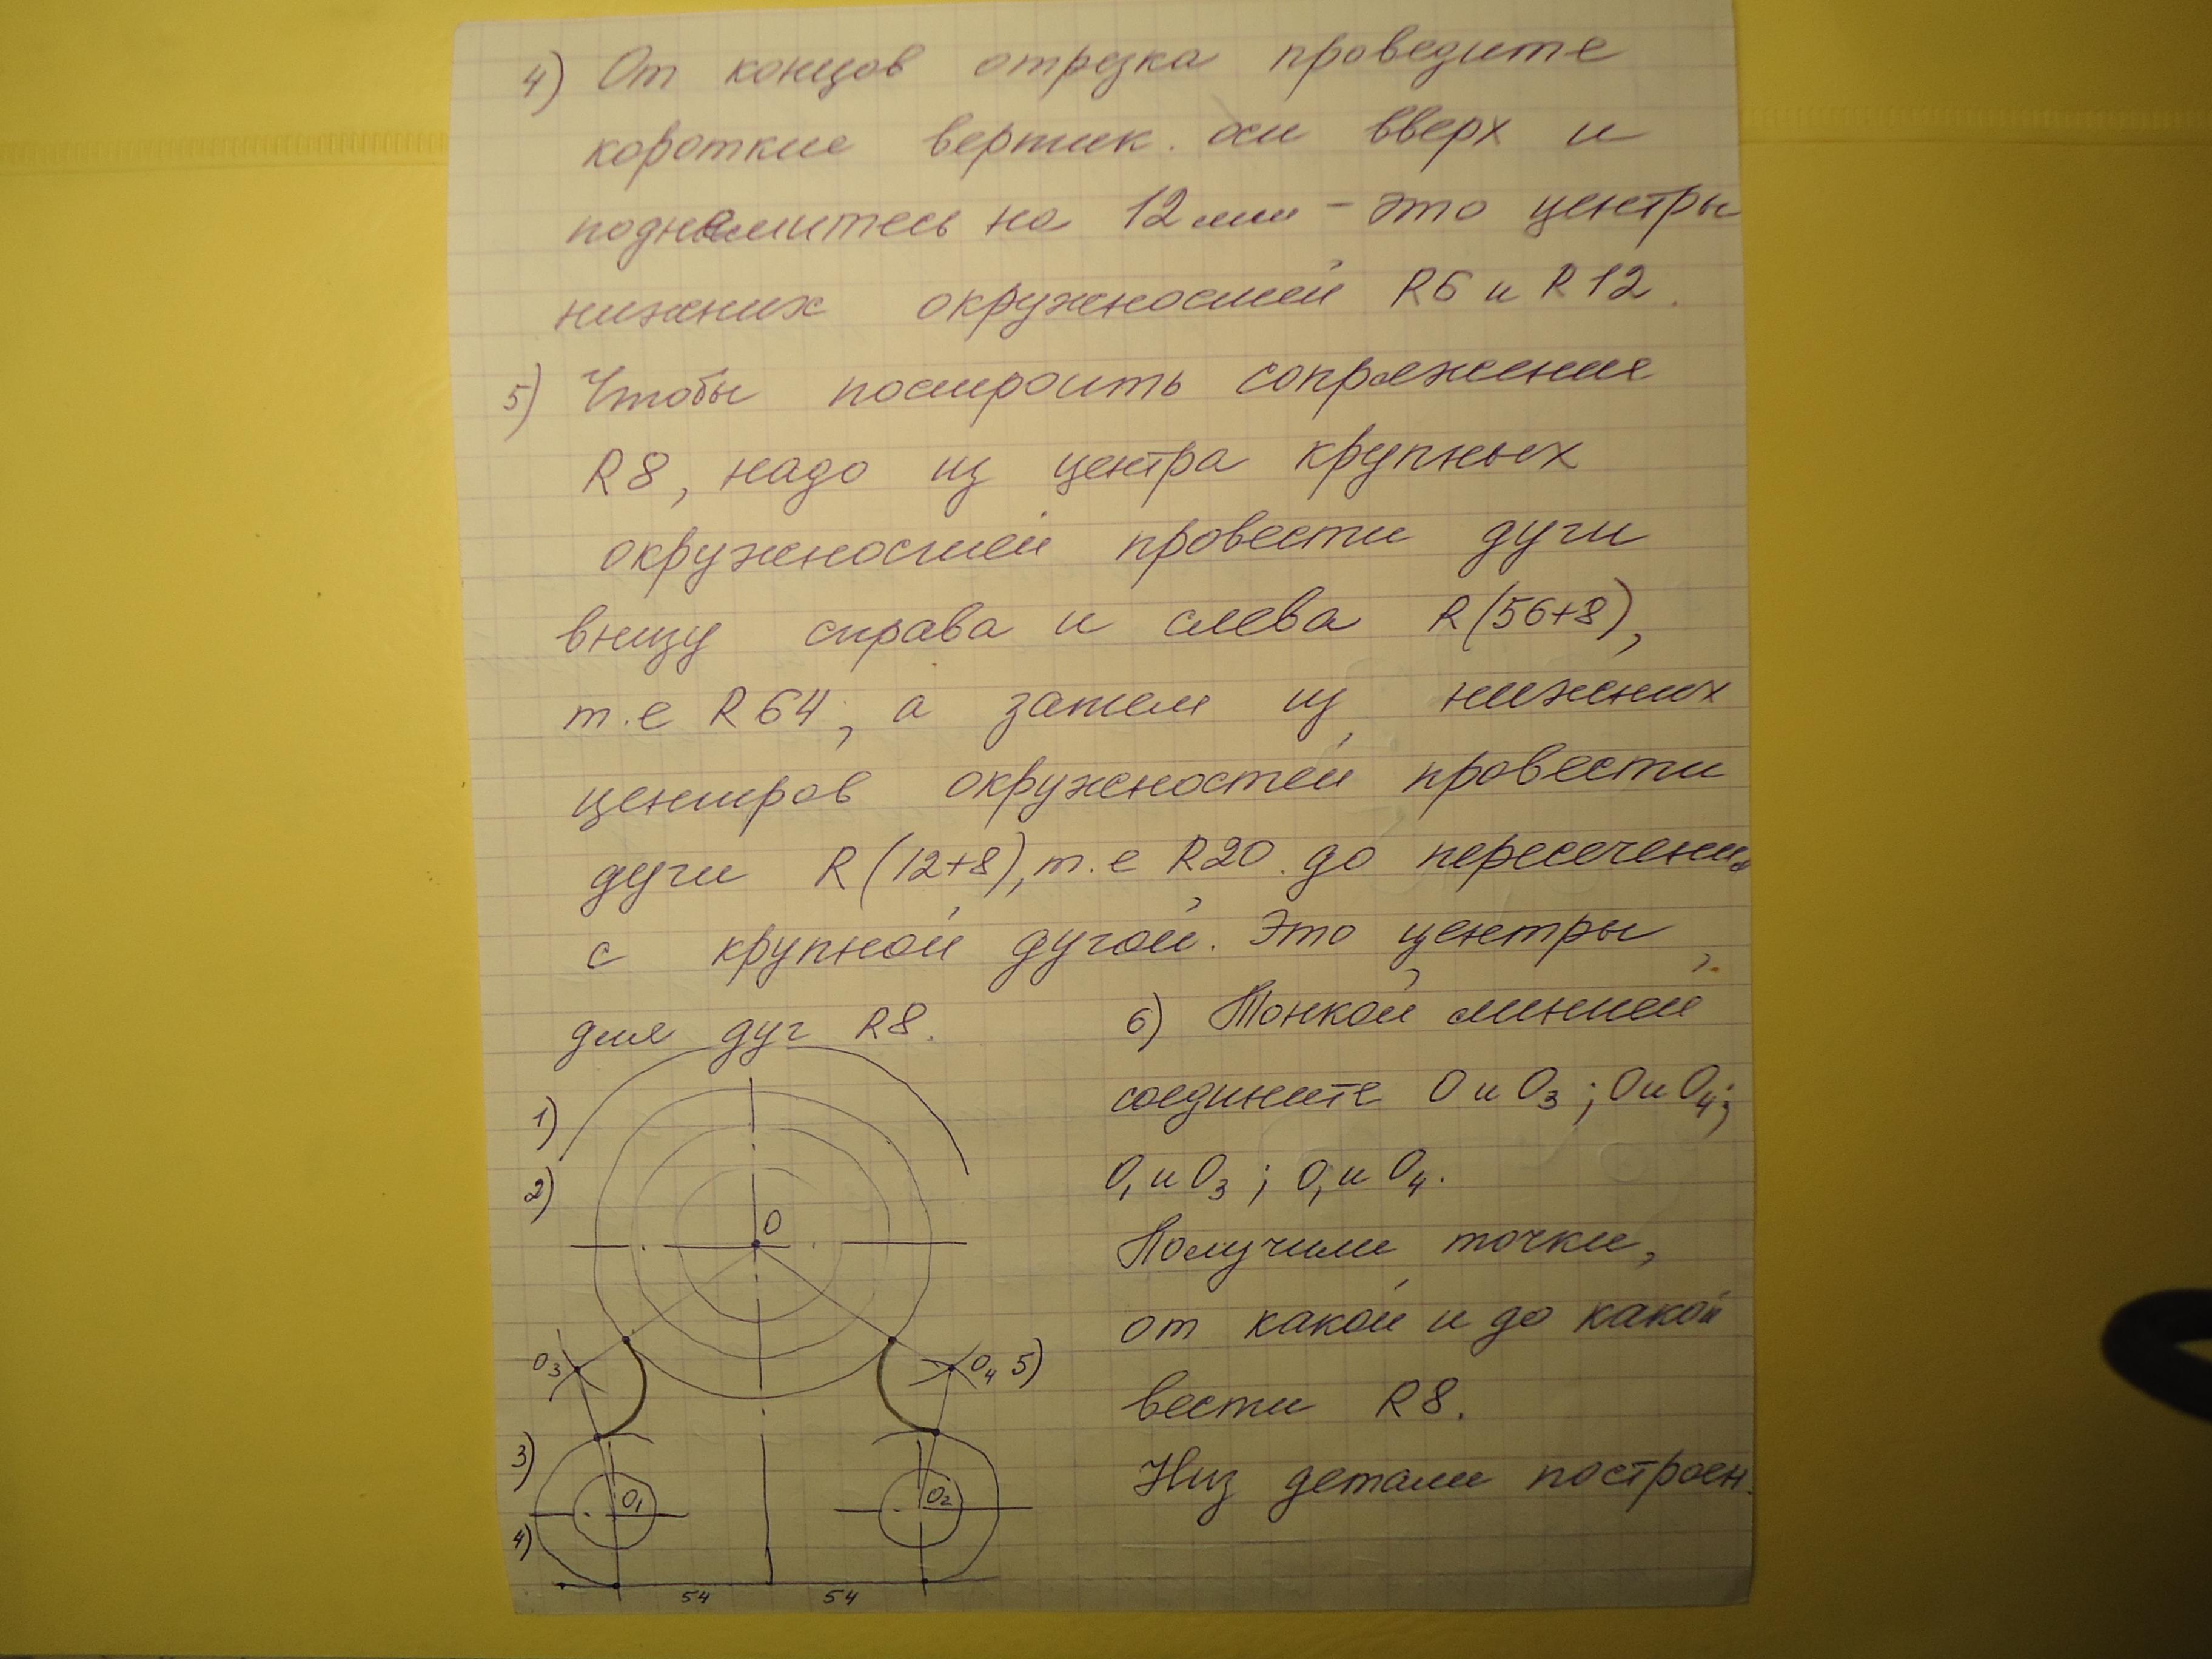 4) От концов отрезка проведите
короткие вертик. оси вверх и
поднимитесь на 12 мм - это центры
нижних окружностей R6 и R12.
5) Чтобы построить сопряжение
R8, надо из центра крупных
окружностей провести дуги
внизу справа и слева R(56+8),
т.е R64; а затем из нижних
центров окружностей провести
дуги R(12+8), т.е R20. до пересечения
с крупной дугой. Это центры
для дуг R8.
6) Тонкой линией
соедините O и O3; O и O4;
O1 и O3; O1 и O4.
Получили точки,
от какой и до какой
вести R8.
Низ детали построен.
1)
2)
O
O3
O4 5)
3)
O1
O2
4)
54
54